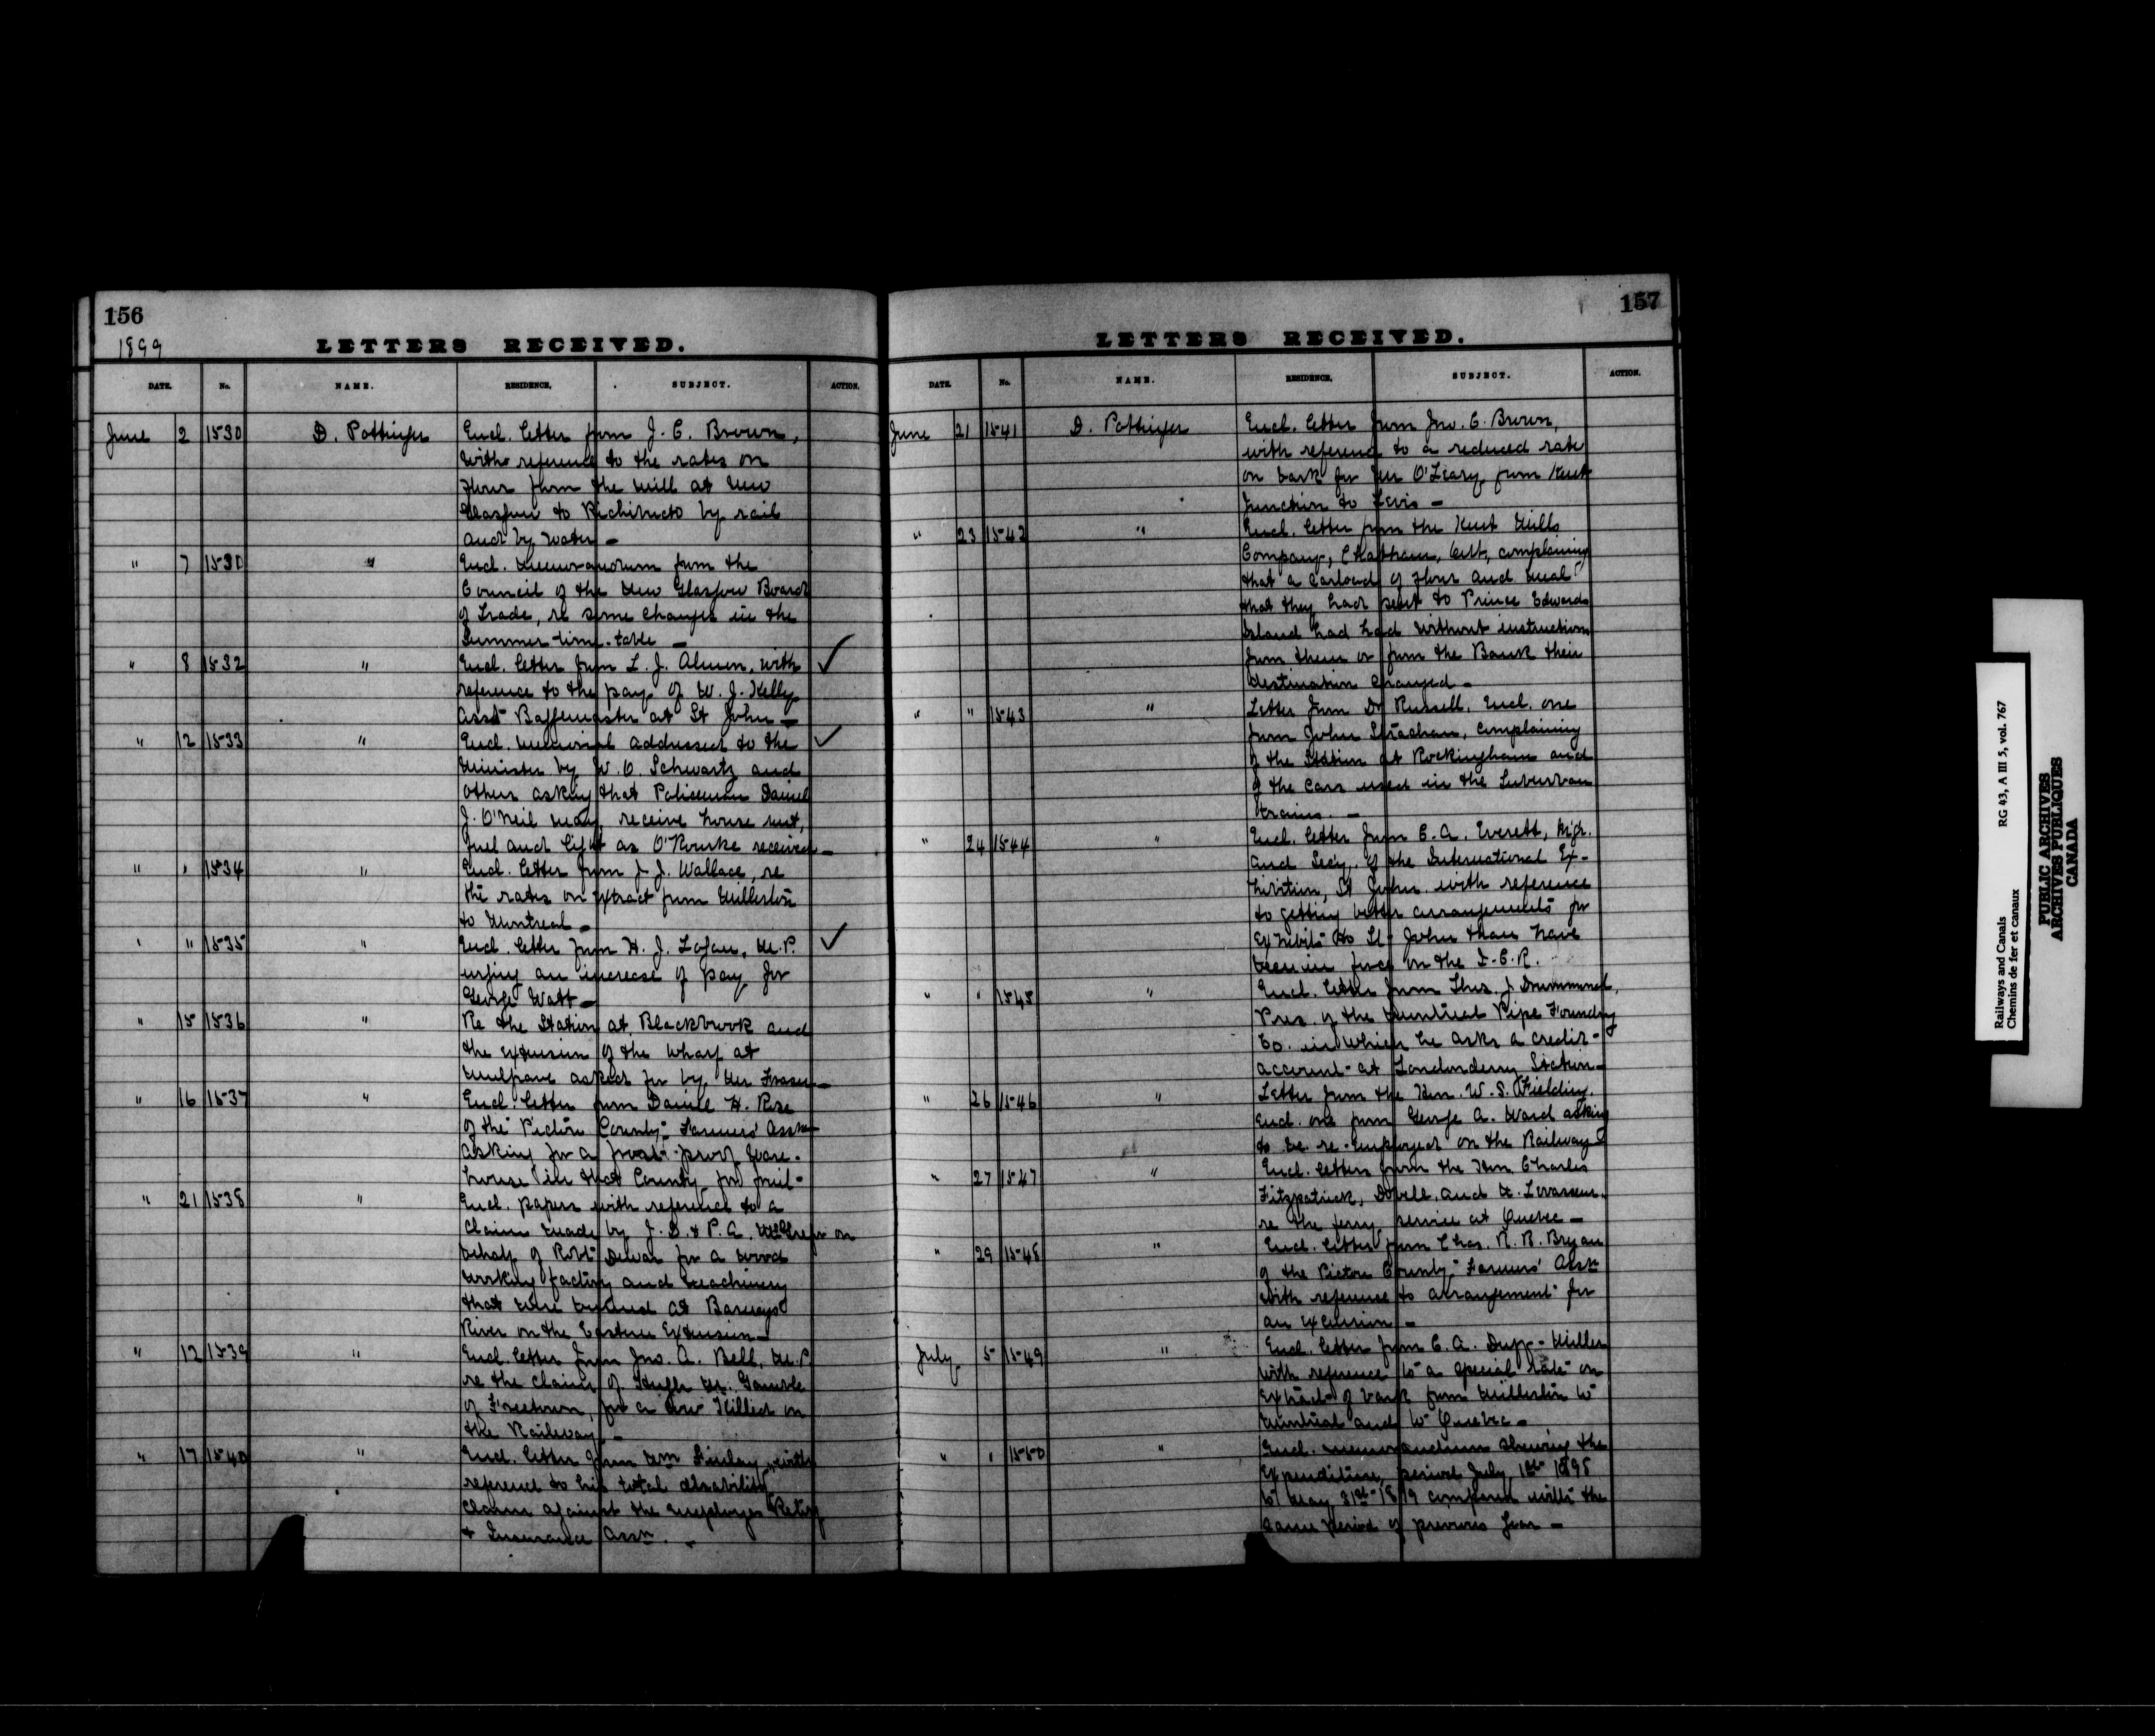 156
1899
LETTERS RECEIVED.
DATE. No. NAME. RESIDENCE. SUBJECT. ACTION.
June 2 1530 D. Pottinger Encl. letter from J. E. Brown,
with reference to the rates on
flour from the mill at New
Glasgow to Richibucto by rail
and by water –
" 7 1530 " Encl. memorandum from the
Council of the New Glasgow Board
of Trade, re some changes in the
Summer time-table –
" 8 1532 " Encl. letter from L. J. Almon, with ✓
reference to the pay of W. J. Kelly
Asst Baggemaster at St John –
" 12 1533 " Encl. memorial addressed to the ✓
Minister by W. O. Schwartz and
others asking that Policeman Daniel
J. O'Neil may receive house rent,
fuel and light as O'Rourke received –
" " 1534 " Encl. letter from J. J. Wallace, re
the rates on extract from Millerton
to Montreal –
" " 1535 " Encl. letter from H. J. Logan, M.P. ✓
urging an increase of pay for
George Watt –
" 15 1536 " Re the Station at Blackbrook and
the extension of the wharf at
Mulgrave asked for by Mr Fraser –
" 16 1537 " Encl. letter from Daniel H. Rose
of the Pictou County Farmers' Assn
asking for a frost-proof Ware-
house in that County for fruit –
" 21 1538 " Encl. papers with reference to a
claim made by J. D. & P. A. McGregor on
behalf of Robt Dewar for a wood
working factory and machinery
that were burned at Barneys
River on the Eastern Extension –
" 12 1539 " Encl. letter from Jno. A. Bell, M.P.
re the claim of Hugh Mr. Gamble
of Freetown, for a cow killed on
the Railway –
" 17 1540 " Encl. letter from Wm Finlay with
reference to his total disability
claim against the Employes Relief
& Insurance Assn. –
157
LETTERS RECEIVED.
DATE. No. NAME. RESIDENCE. SUBJECT. ACTION.
June 21 1541 D. Pottinger Encl. letter from Jno. E. Brown,
with reference to a reduced rate
on bark for Mr O'Leary from Kent
Junction to Levis –
" 23 1542 " Encl. letter from the Kent Mills
Company, Chatham, Ont, complaining
that a carload of flour and meal
that they had sent to Prince Edward
Island had had without instructions
from them or from the Bank their
destination changed –
" " 1543 " Letter from Dr Russell, Encl. one
from John Strachan, complaining
of the Station at Rockingham and
of the cars used in the Suburban
trains. –
" 24 1544 " Encl. letter from C. A. Everett, Mgr.
and Secy. of the International Ex-
hibition, St John with reference
to getting better arrangements for
exhibits to St John than have
been in force on the I.C.R.
" " 1545 " Encl. letter from Thos. J. Drummond,
Pres. of the Montreal Pipe Foundry
Co. in which he asks a credit-
account at Londonderry Station –
" 26 1546 " Letter from the Hon. W. S. Fielding.
Encl. one from George A. Ward asking
to be re-employed on the Railway –
" 27 1547 " Encl. letters from the Hon Charles
Fitzpatrick, Dobell, and Levasseur.
re the ferry service at Quebec –
" 29 1548 " Encl. letter from Chas. R. B. Bryan
of the Pictou County Farmers' Assn
with reference to arrangement for
an excursion –
July 5 1549 " Encl. letter from C. A. Duff-Miller
with reference to a special rate on
extract of bark from Millerton to
Montreal and to Quebec –
" " 1550 " Encl. memorandum showing the
Expenditure, period July 1st 1898
to May 31st 1899 compared with the
same period of previous year –
Railways and Canals RG 43, A III 5, vol. 767
Chemins de fer et canaux
PUBLIC ARCHIVES
ARCHIVES PUBLIQUES
CANADA